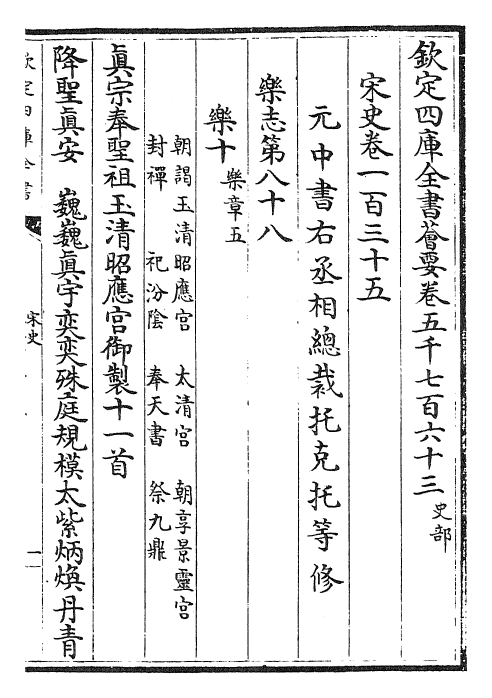 欽定四庫全書薈要卷五千七百六十三 史部
宋史卷一百三十五
元中書右丞相總裁托克托等修
樂志第八十八
樂十 樂章五
朝謁玉清昭應宮 太清宮 朝享景靈宮
封禪 祀汾陰 奉天書 祭九鼎
真宗奉聖祖玉清昭應宮御製十一首
降聖真安 巍巍真宇奕奕殊庭規模太紫炳煥丹青
欽定四庫全書
宋史
一